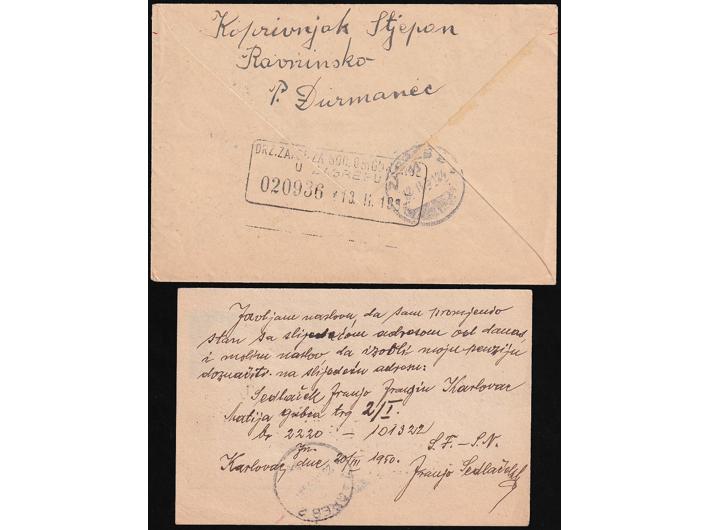 Koprivnjak Stjepan
Ravninsko
P. Đurmanec
DRŽ. ZAVOD ZA SOC. OSIGURANJE
U ZAGREBU
020936 13. II. 19
ZAGREB
Javljam naslovu da sam promjenio
stan sa slijedećom adresom od danas
i molim naslov da izvoli moju penziju
doznačiti na slijedeću adresu:
Sedlaček Franjo Franjin Karlovac
Matija gubca trg 2/I.
br 2220 – 101322
S.F. – S.N.
Karlovac, dne 20/III 1950.
Franjo Sedlaček
ZAGREB 2